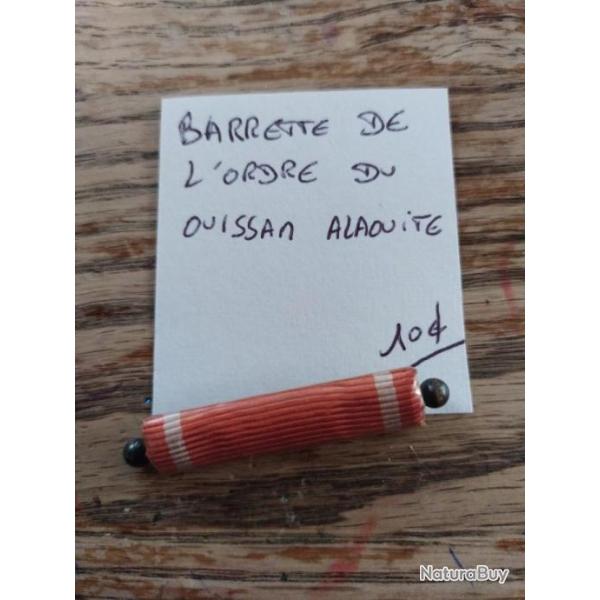 BARRETTE DE
L'ORDRE DU
OUISSAM ALAOUITE
10€
NaturaBuy